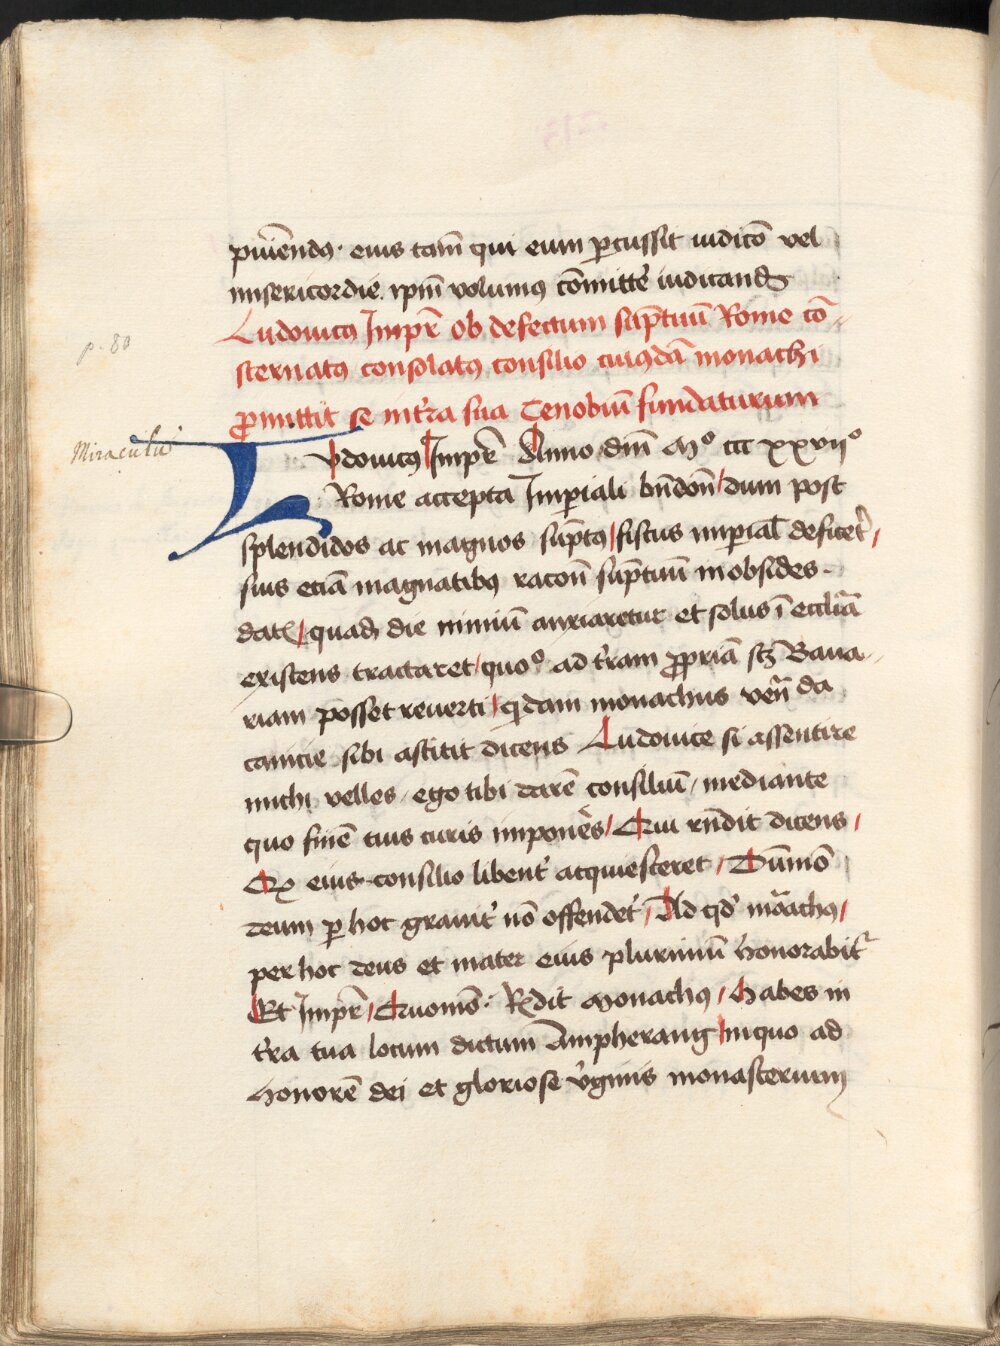 puniendus· eius tam̄ qui eum percussit iudicō vel
misericordie ip̄m volumus cōmitte iudicand
Ludovicus Impr̄ ob defectum sūptuū Rome cō=
sternatus consolatus consilio cuiusdā monachi
promittit se in tr̄a sua Cenobiū fundaturum
p. 80
Miraculū
Ludovicus Impr̄ Anno dn̄i Mo ccc xxviio
Rome accepta Imperiali bn̄dōn dum post
splendidos ac magnos sūptus fiscus imperial deficet
suis eciā magnatibus racōn sūptuū in obsides
datis quadā die nimiū anxiaretur et solus ī eccl̄ia
existens tractaret quoo ad tr̄am propriā scz Bava=
riam posset reverti quidam monachus ven̄da
canicie sibi astitit dicens Ludovice si assentire
michi velles ego tibi darē consiliū mediante
quo finē tuis curis impones Qui rn̄dit dicens
Qz eius consilio libent acquiesceret Dūmō
deum per hoc gravit nō offendet Ad qd mōachus
per hoc deus et mater eius plurimū honorabitr
Et Impr̄ Quomō· Rn̄dit monachus Habes in
tr̄a tua locum dictum Ampherang in quo ad
honorē dei et gloriose virginis monasterium